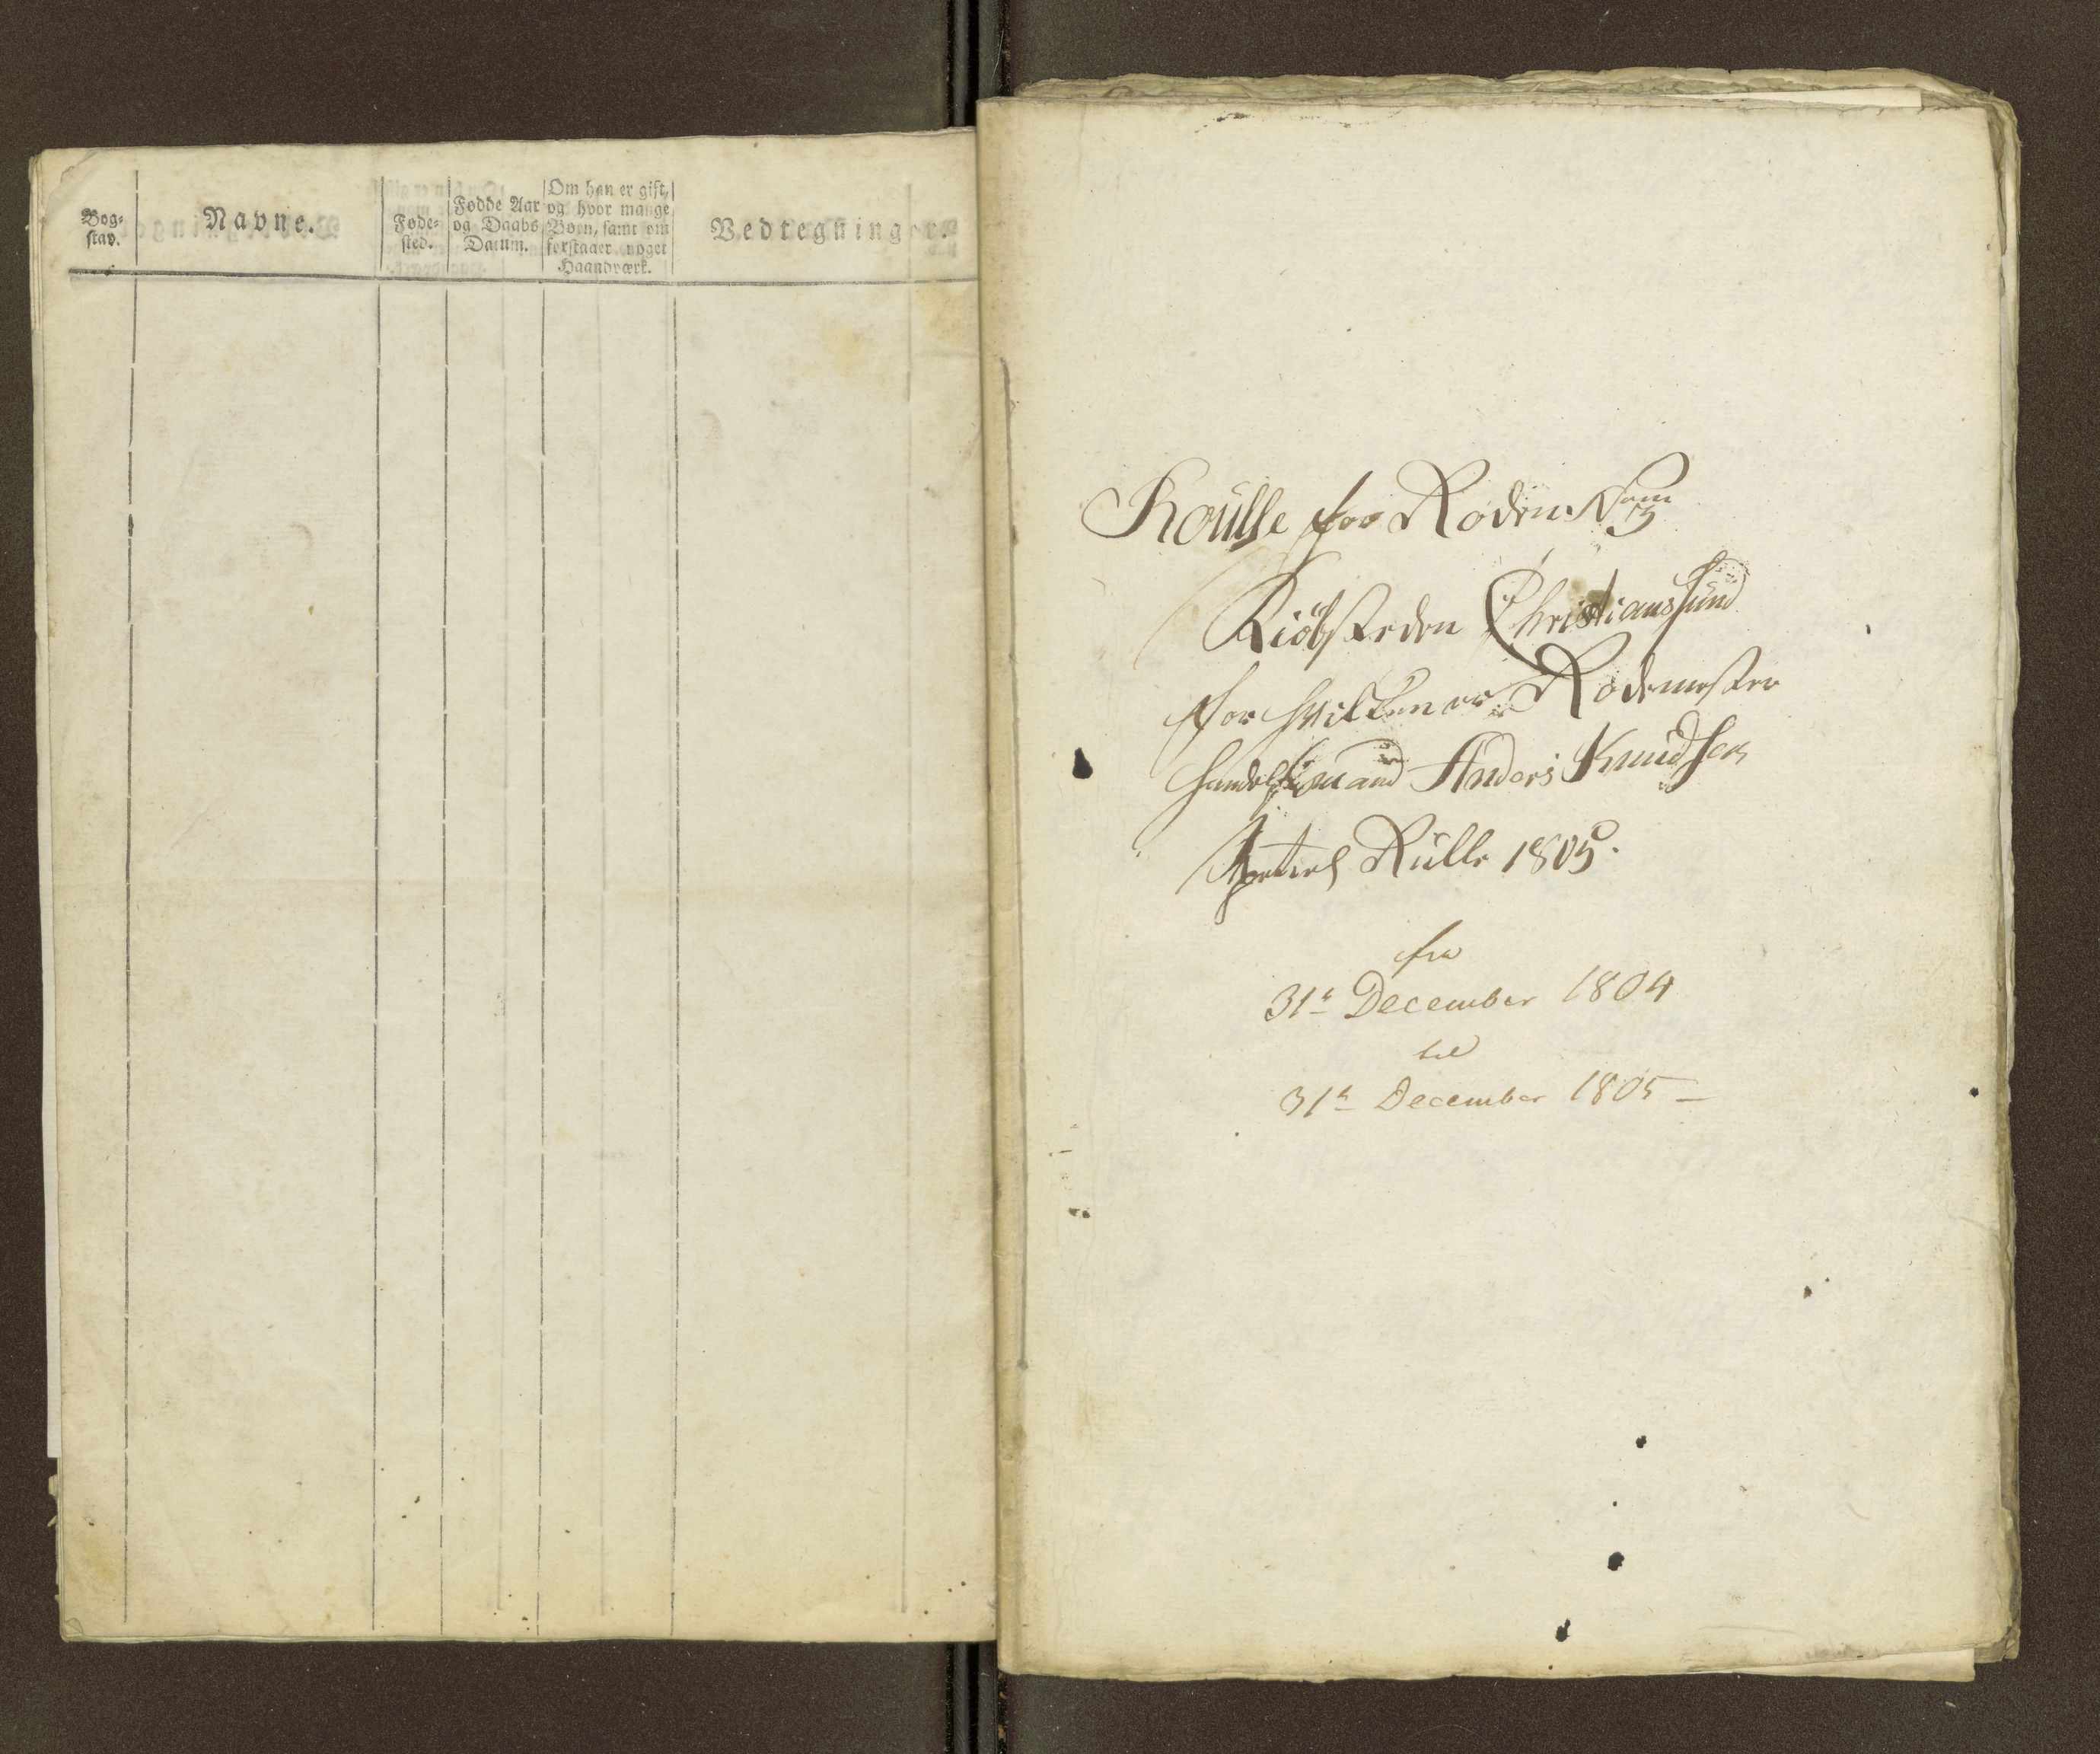 Bog-
stav.
Navne.
Føde-
sted.
Fødde Aar
og Daabs
Datum.
Om han er gift,
og hvor mange
Børn, samt om
forstaaer noget
Haandværk.
Vedtegninger.
Roulle for Roden No 3
Kiöbsteden Christiansund
for hvilken er Rodemester
Handelsmand Anders Knudsen
Rulle 1805.
fra
31te December 1804
til
31te December 1805 –